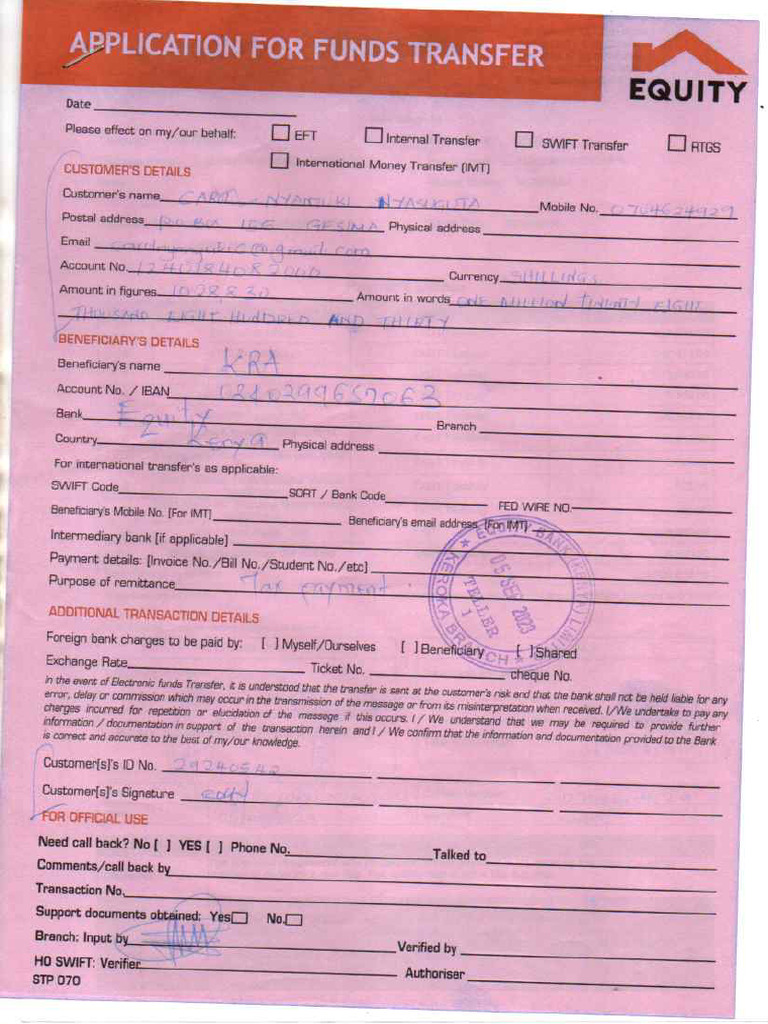 APPLICATION FOR FUNDS TRANSFER
EQUITY
Date
Please effect on my/our behalf: EFT Internal Transfer SWIFT Transfer RTGS
International Money Transfer (IMT)
CUSTOMER'S DETAILS
Customer's name NYASUGUTA Mobile No. 0704624929
Postal address P.O. BOX GESIMA Physical address
Email @gmail.com
Account No. Currency SHILLINGS
Amount in figures 1028830 Amount in words ONE MILLION TWENTY EIGHT
THOUSAND EIGHT HUNDRED AND THIRTY
BENEFICIARY'S DETAILS
Beneficiary's name KRA
Account No. / IBAN
Bank Equity Branch
Country Kenya Physical address
For international transfer's as applicable:
SWIFT Code SORT / Bank Code FED WIRE NO.
Beneficiary's Mobile No. [For IMT] Beneficiary's email address [For IMT]
Intermediary bank [if applicable]
Payment details: [Invoice No./Bill No./Student No./etc]
Purpose of remittance Tax payment
EQUITY BANK (KENYA) LIMITED
05 SEP 2023
TELLER
1
KEROKA BRANCH
ADDITIONAL TRANSACTION DETAILS
Foreign bank charges to be paid by: [ ] Myself/Ourselves [ ] Beneficiary [ ] Shared
Exchange Rate Ticket No. cheque No.
In the event of Electronic funds Transfer, it is understood that the transfer is sent at the customer's risk and that the bank shall not be held liable for any
error, delay or commission which may occur in the transmission of the message or from its misinterpretation when received. I/We undertake to pay any
charges incurred for repetition or elucidation of the message if this occurs. I / We understand that we may be required to provide further
information / documentation in support of the transaction herein and I / We confirm that the information and documentation provided to the Bank
is correct and accurate to the best of my/our knowledge.
Customer[s]'s ID No. 29240542
Customer[s]'s Signature
FOR OFFICIAL USE
Need call back? No [ ] YES [ ] Phone No. Talked to
Comments/call back by
Transaction No.
Support documents obtained: Yes No.
Branch: Input by Verified by
HO SWIFT: Verifier Authoriser
STP 070